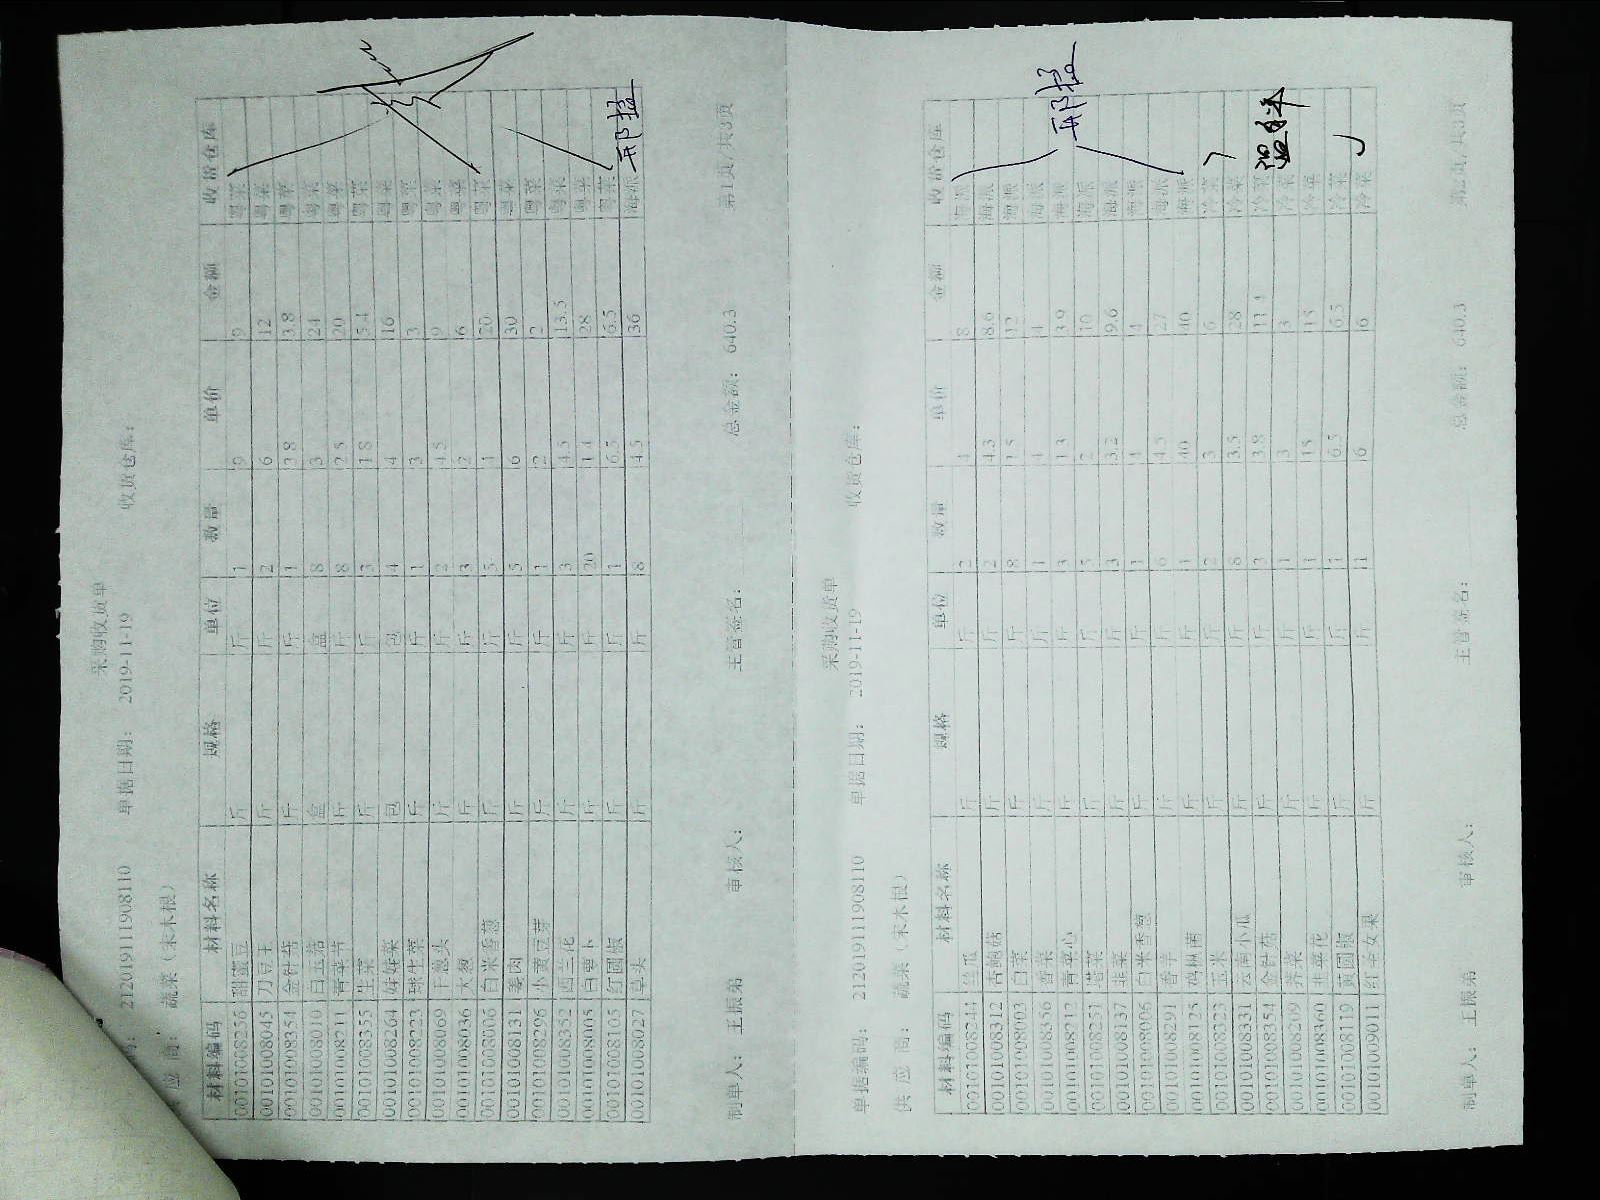 采购收货单
单据日期： 2019-11-19 收货仓库：
212019111908110
应 商： 蔬菜（宋木根）
材料编码 材料名称 规格 单位 数量 单价 金额 收货仓库
00101008336 甜蜜豆 斤 斤 1 9 9 粤菜
00101008045 刀豆王 斤 斤 2 6 12 粤菜
00101008354 金针菇 斤 斤 1 3.8 3.8 粤菜
00101008010 白玉菇 盒 盒 8 3 24 粤菜
00101008211 青菜苔 斤 斤 8 2.5 20 粤菜
00101008355 生菜 斤 斤 3 1.8 5.4 粤菜
00101008264 娃娃菜 包 包 4 4 16 粤菜
00101008223 球生菜 斤 斤 1 3 3 粤菜
00101008069 干葱头 斤 斤 2 4.5 9 粤菜
00101008036 大葱 斤 斤 3 2 6 粤菜
00101008006 白米香葱 斤 斤 5 4 20 粤菜
00101008131 姜肉 斤 斤 5 6 30 粤菜
00101008296 小黄豆芽 斤 斤 1 2 2 粤菜
00101008352 西兰花 斤 斤 3 4.5 13.5 粤菜
00101008005 白萝卜 斤 斤 20 1.4 28 粤菜
00101008105 红圆椒 斤 斤 1 6.5 6.5 粤菜
00101008027 草头 斤 斤 8 4.5 36 海派
制单人： 王振弟 审核人： 主管签名： 总金额： 640.3 第1页/共3页
采购收货单
单据编码： 212019111908110 单据日期： 2019-11-19 收货仓库：
供 应 商： 蔬菜（宋木根）
材料编码 材料名称 规格 单位 数量 单价 金额 收货仓库
00101008244 丝瓜 斤 斤 2 4 8 海派
00101008312 杏鲍菇 斤 斤 2 4.3 8.6 海派
00101008003 白菜 斤 斤 8 1.5 12 海派
00101008356 香菜 斤 斤 1 4 4 海派
00101008212 青菜心 斤 斤 3 1.3 3.9 海派
00101008251 塔菜 斤 斤 5 2 10 海派
00101008137 韭菜 斤 斤 3 3.2 9.6 海派
00101008006 白米香葱 斤 斤 1 4 4 海派
00101008291 香芋 斤 斤 6 4.5 27 海派
00101008125 鸡枞菌 斤 斤 1 40 40 海派
00101008323 玉米 斤 斤 2 3 6 冷菜
00101008331 云南小瓜 斤 斤 8 3.5 28 冷菜
00101008354 金针菇 斤 斤 3 3.8 11.4 冷菜
00101008209 荠菜 斤 斤 1 3 3 冷菜
00101008360 韭菜花 斤 斤 1 15 15 冷菜
00101008119 黄圆椒 斤 斤 1 6.5 6.5 冷菜
00101009011 红圣女果 斤 斤 1 6 6 冷菜
制单人： 王振弟 审核人： 主管签名： 总金额： 640.3 第2页/共3页